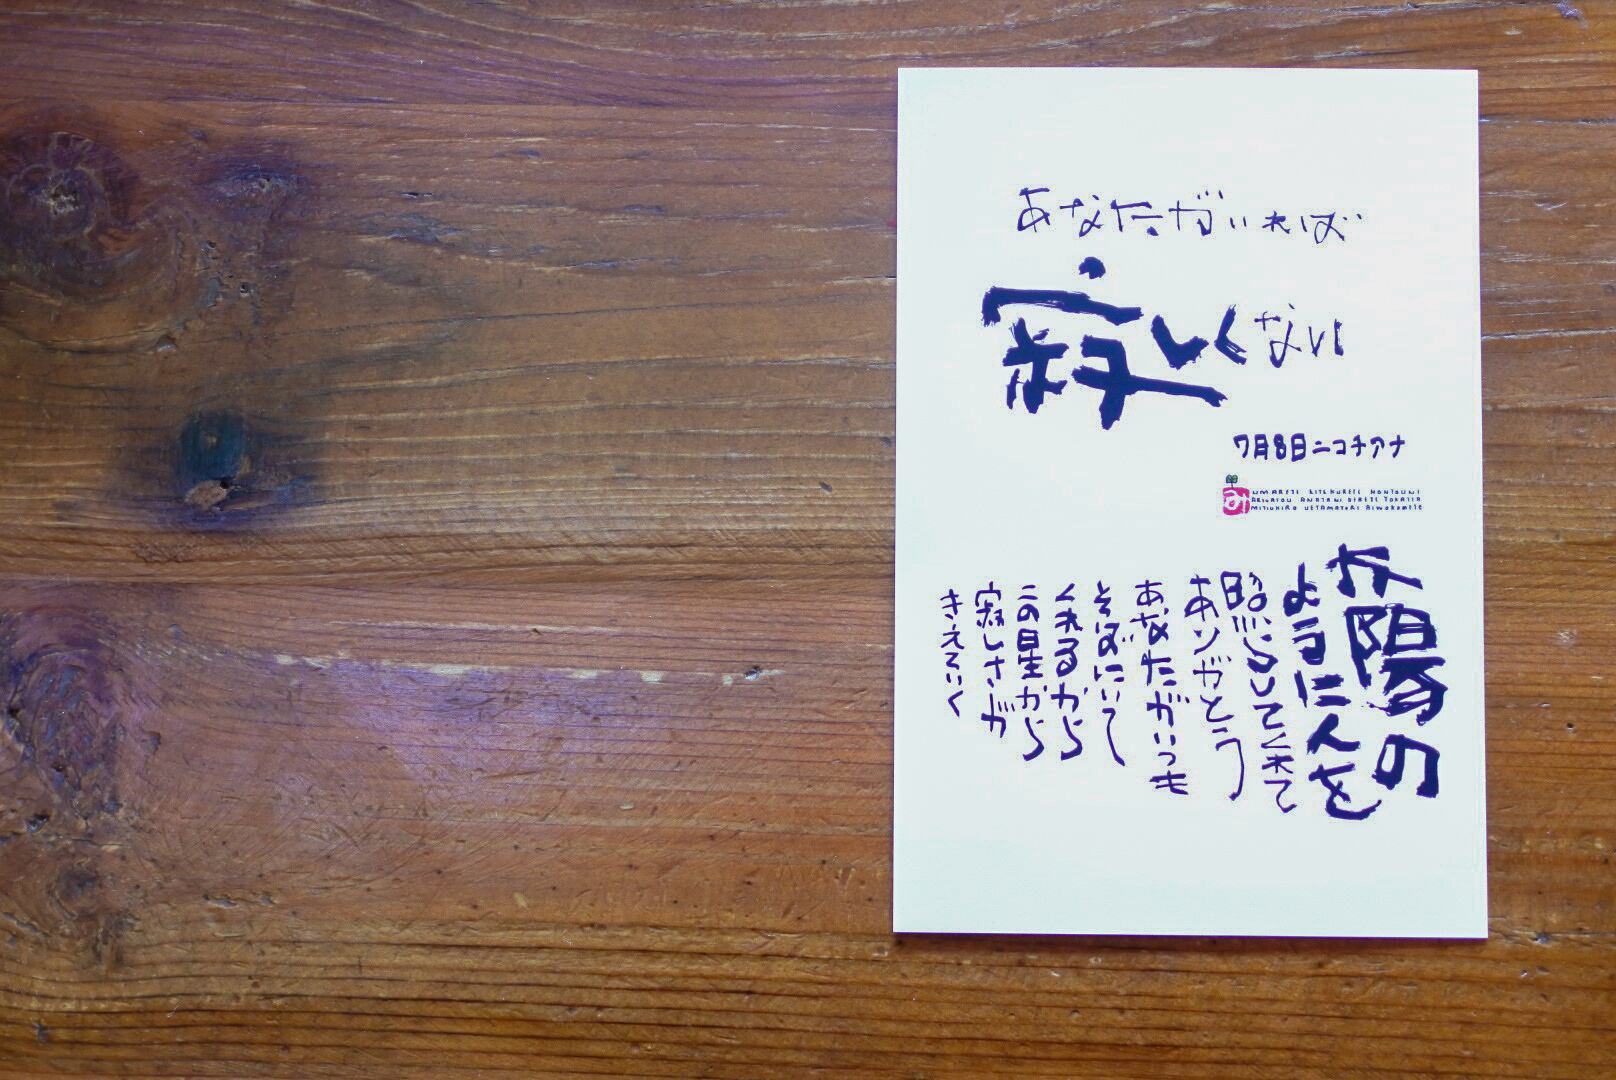 あなたがいれば
寂しくない
7月8日ニコチアナ
み
UMARETE KITEKURETE HONTOUNI
ARIGATOU ANATANI DEAETE YOKATTA
MITIUHIRO UETAMATURI AIWOKOMETE
太陽の
ように人を
照らしてくれて
ありがとう
あなたがいつも
そばにいて
くれるから
この星から
寂しさが
きえていく